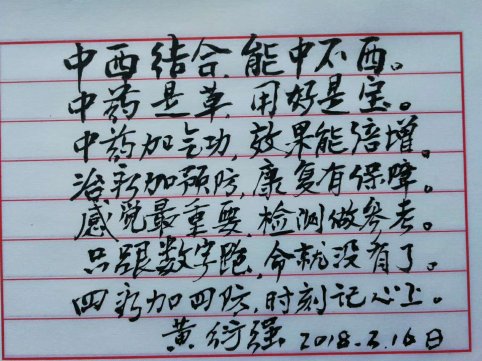 中西结合,能中不西。
中药是草,用好是宝。
中药加气功,效果能倍增。
治疗加预防,康复有保障。
感觉最重要,检测做参考。
只跟数字跑,命就没有了。
四疗加四防,时刻记心上。
黄衍强 2018.3.16日